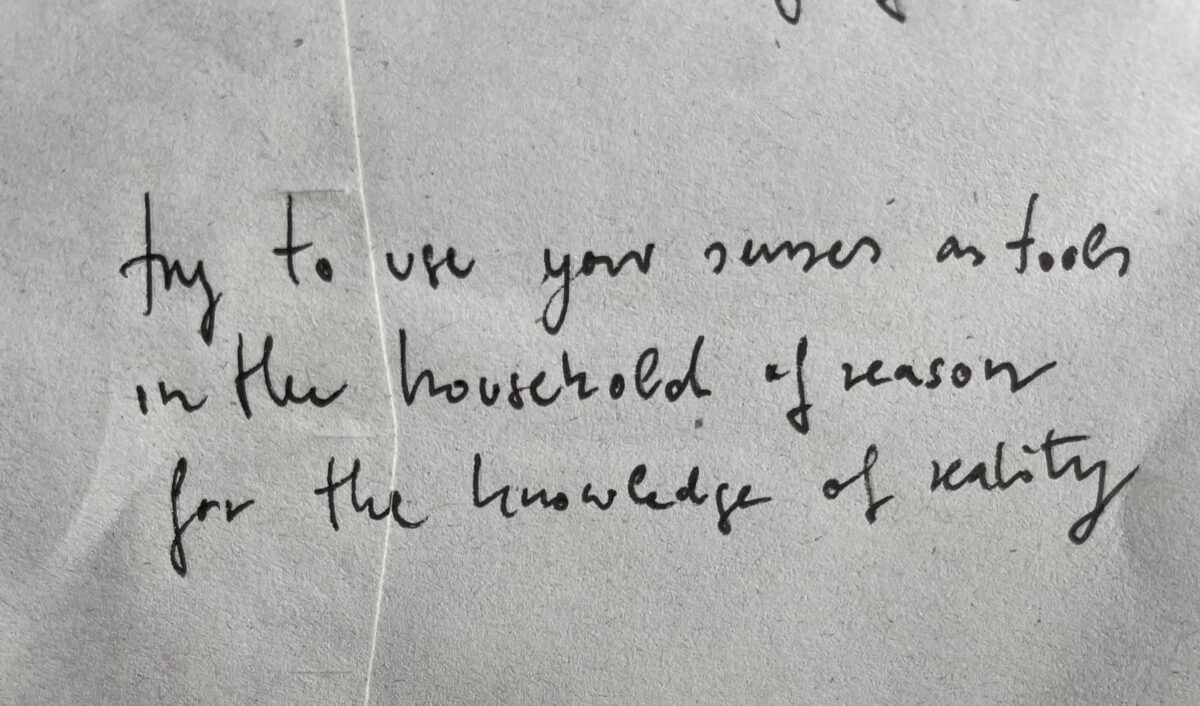 try to use your senses as tools
in the household of reason
for the knowledge of reality